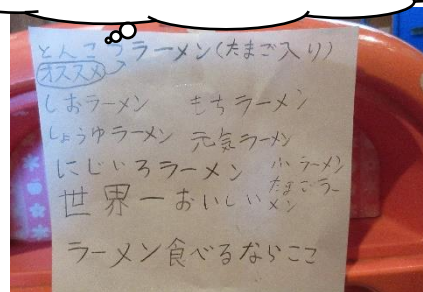 とんこつラーメン(たまご入り)
オススメ
しおラーメン もちラーメン
しょうゆラーメン 元気ラーメン
にじいろラーメン
ラーメン
たまごラー
メン
世界一おいしい
ラーメン食べるならここ